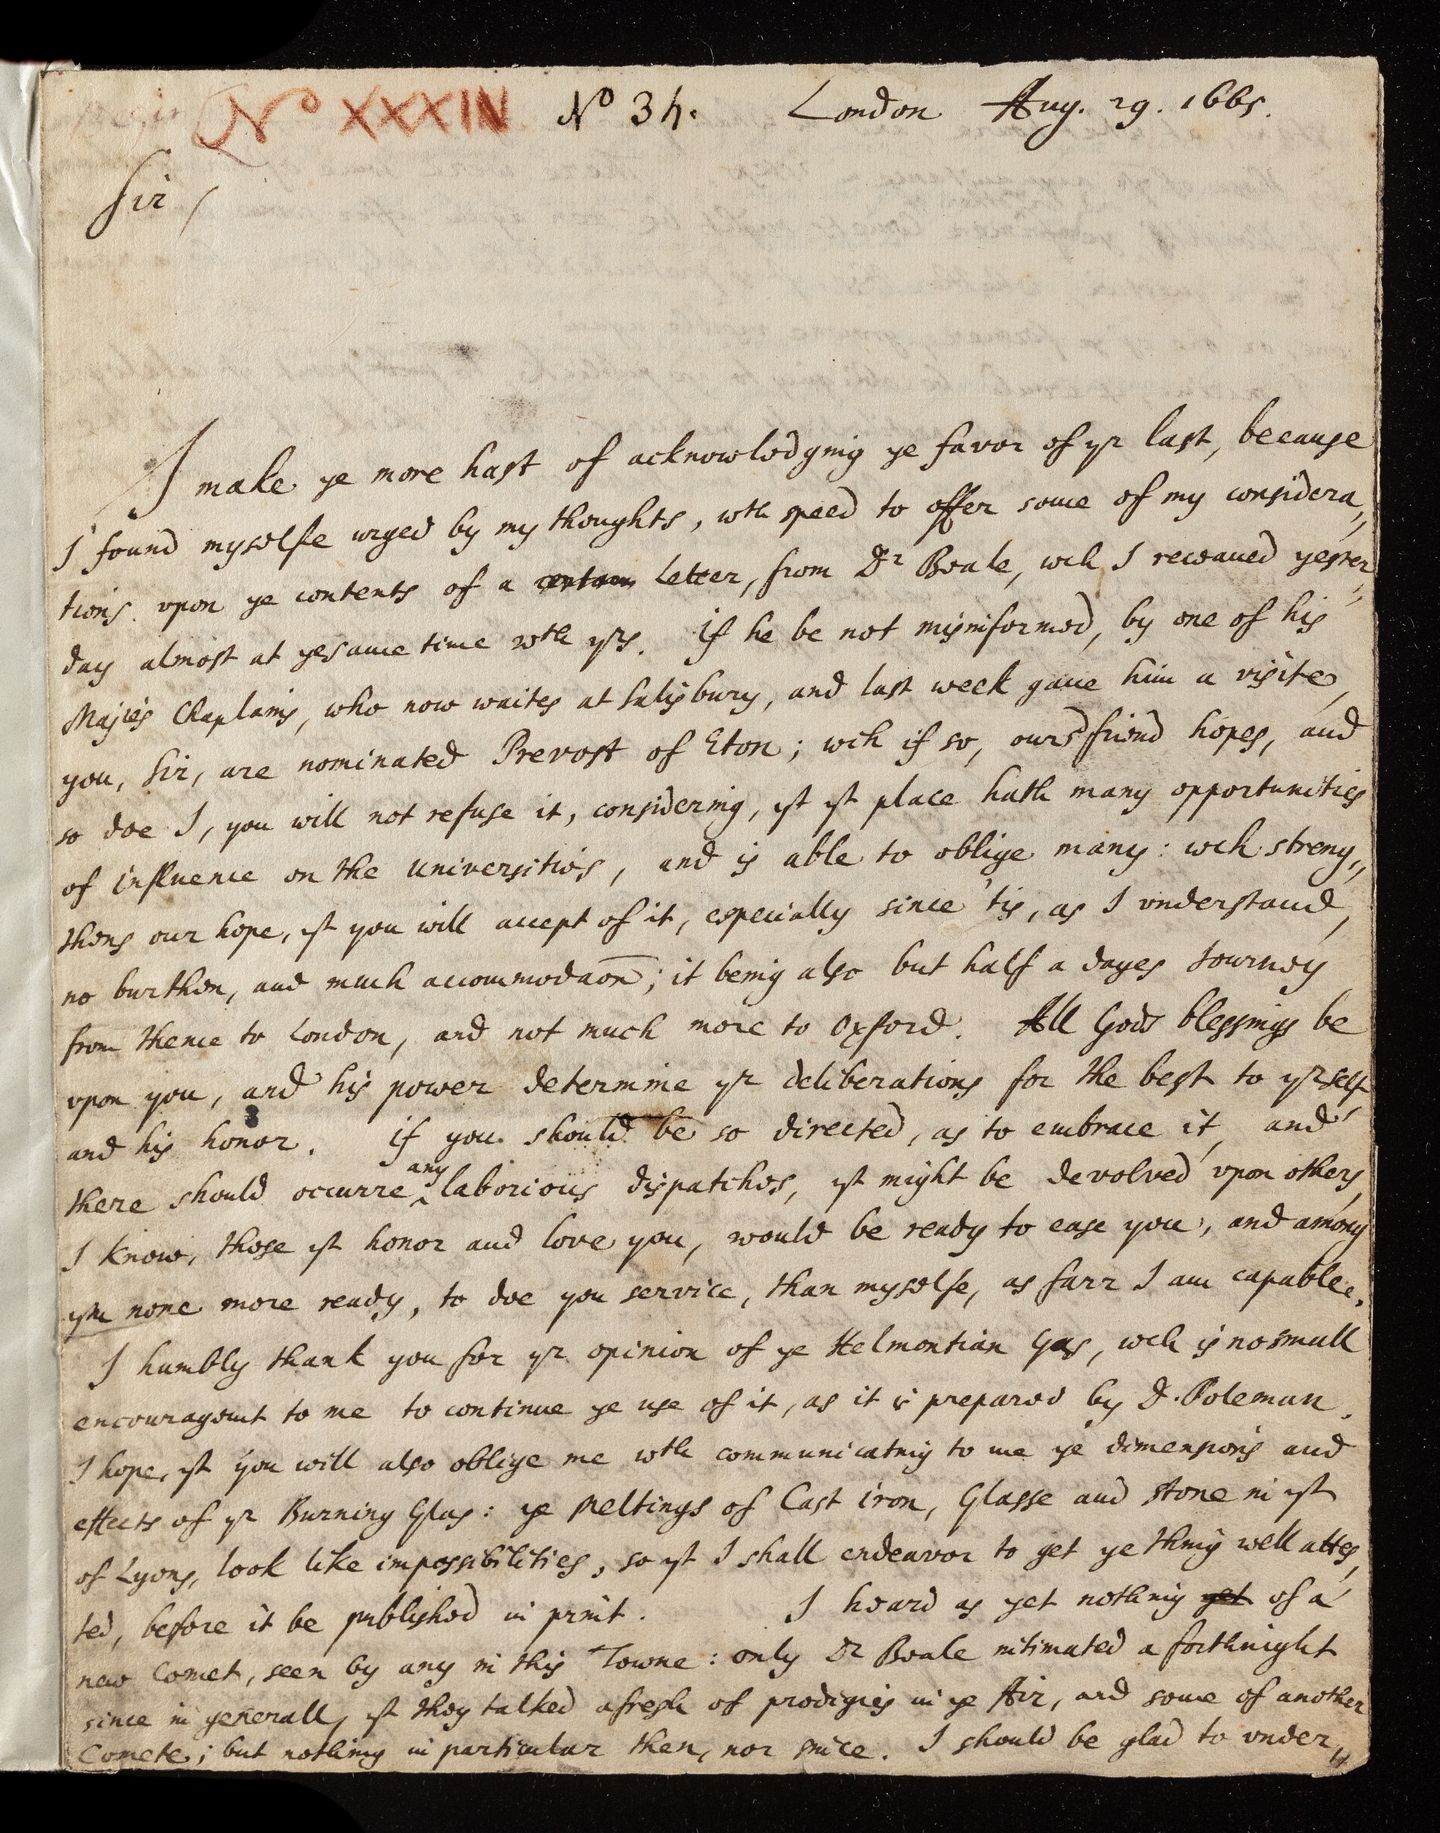 No XXXIV No 34. London Aug. 29. 1665.
Sir,
I make ye more hast of acknowledging ye favor of yr last, because
I found myselfe urged by my thoughts, wth speed to offer some of my considera,,
tions upon ye contents of a certain Letter, from Dr Beale, wch I receaued yester,,
day almost at ye same time wth yrs. If he be not misinformed, by one of his
Majies Chaplains, who now waites at Salisbury, and last week gaue him a visite,
you, Sir, are nominated Prevost of Eton; wch if so, our sd friend hopes, and
so doe I, you will not refuse it, considering, yt yt place hath many opportunities
of influence on the universities, and is able to oblige many: wch streng,,
thens our hope, yt you will accept of it, especially since 'tis, as I understand,
no burthen, and much accommodaon; it being also but half a dayes Journey
from thence to London, and not much more to Oxford. All Gods blessings be
upon you, and his power determine yr deliberations for the best to yrself
and his honor. If you should be so directed, as to embrace it, and
there should occurre any laborious dispatches, yt might be devolved upon others,
I know, those yt honor and love you, would be ready to ease you, and among
ym none more ready, to doe you service, than myselfe, as farr I am capable.
I humbly thank you for yr opinion of ye Helmontian Gas, wch is no small
encouragemt to me to continue ye use of it, as it is prepared by D. Poleman.
I hope, yt you will also oblige me wth communicating to me ye dimensions and
effects of yr Burning Glas: ye meltings of Cast iron, Glasse and stone in yt
of Lyons, look like impossibilities, so yt I shall endeavor to get ye thing well attes,,
ted, before it be published in print. I heard as yet nothing yet of a
new Comet, seen by any in this Towne: only Dr Beale intimated a forthnight
since in generall, yt they talked afresh of prodigies in ye Air, and some of another
Comete; but nothing in particular then, nor since. I should be glad to under,,